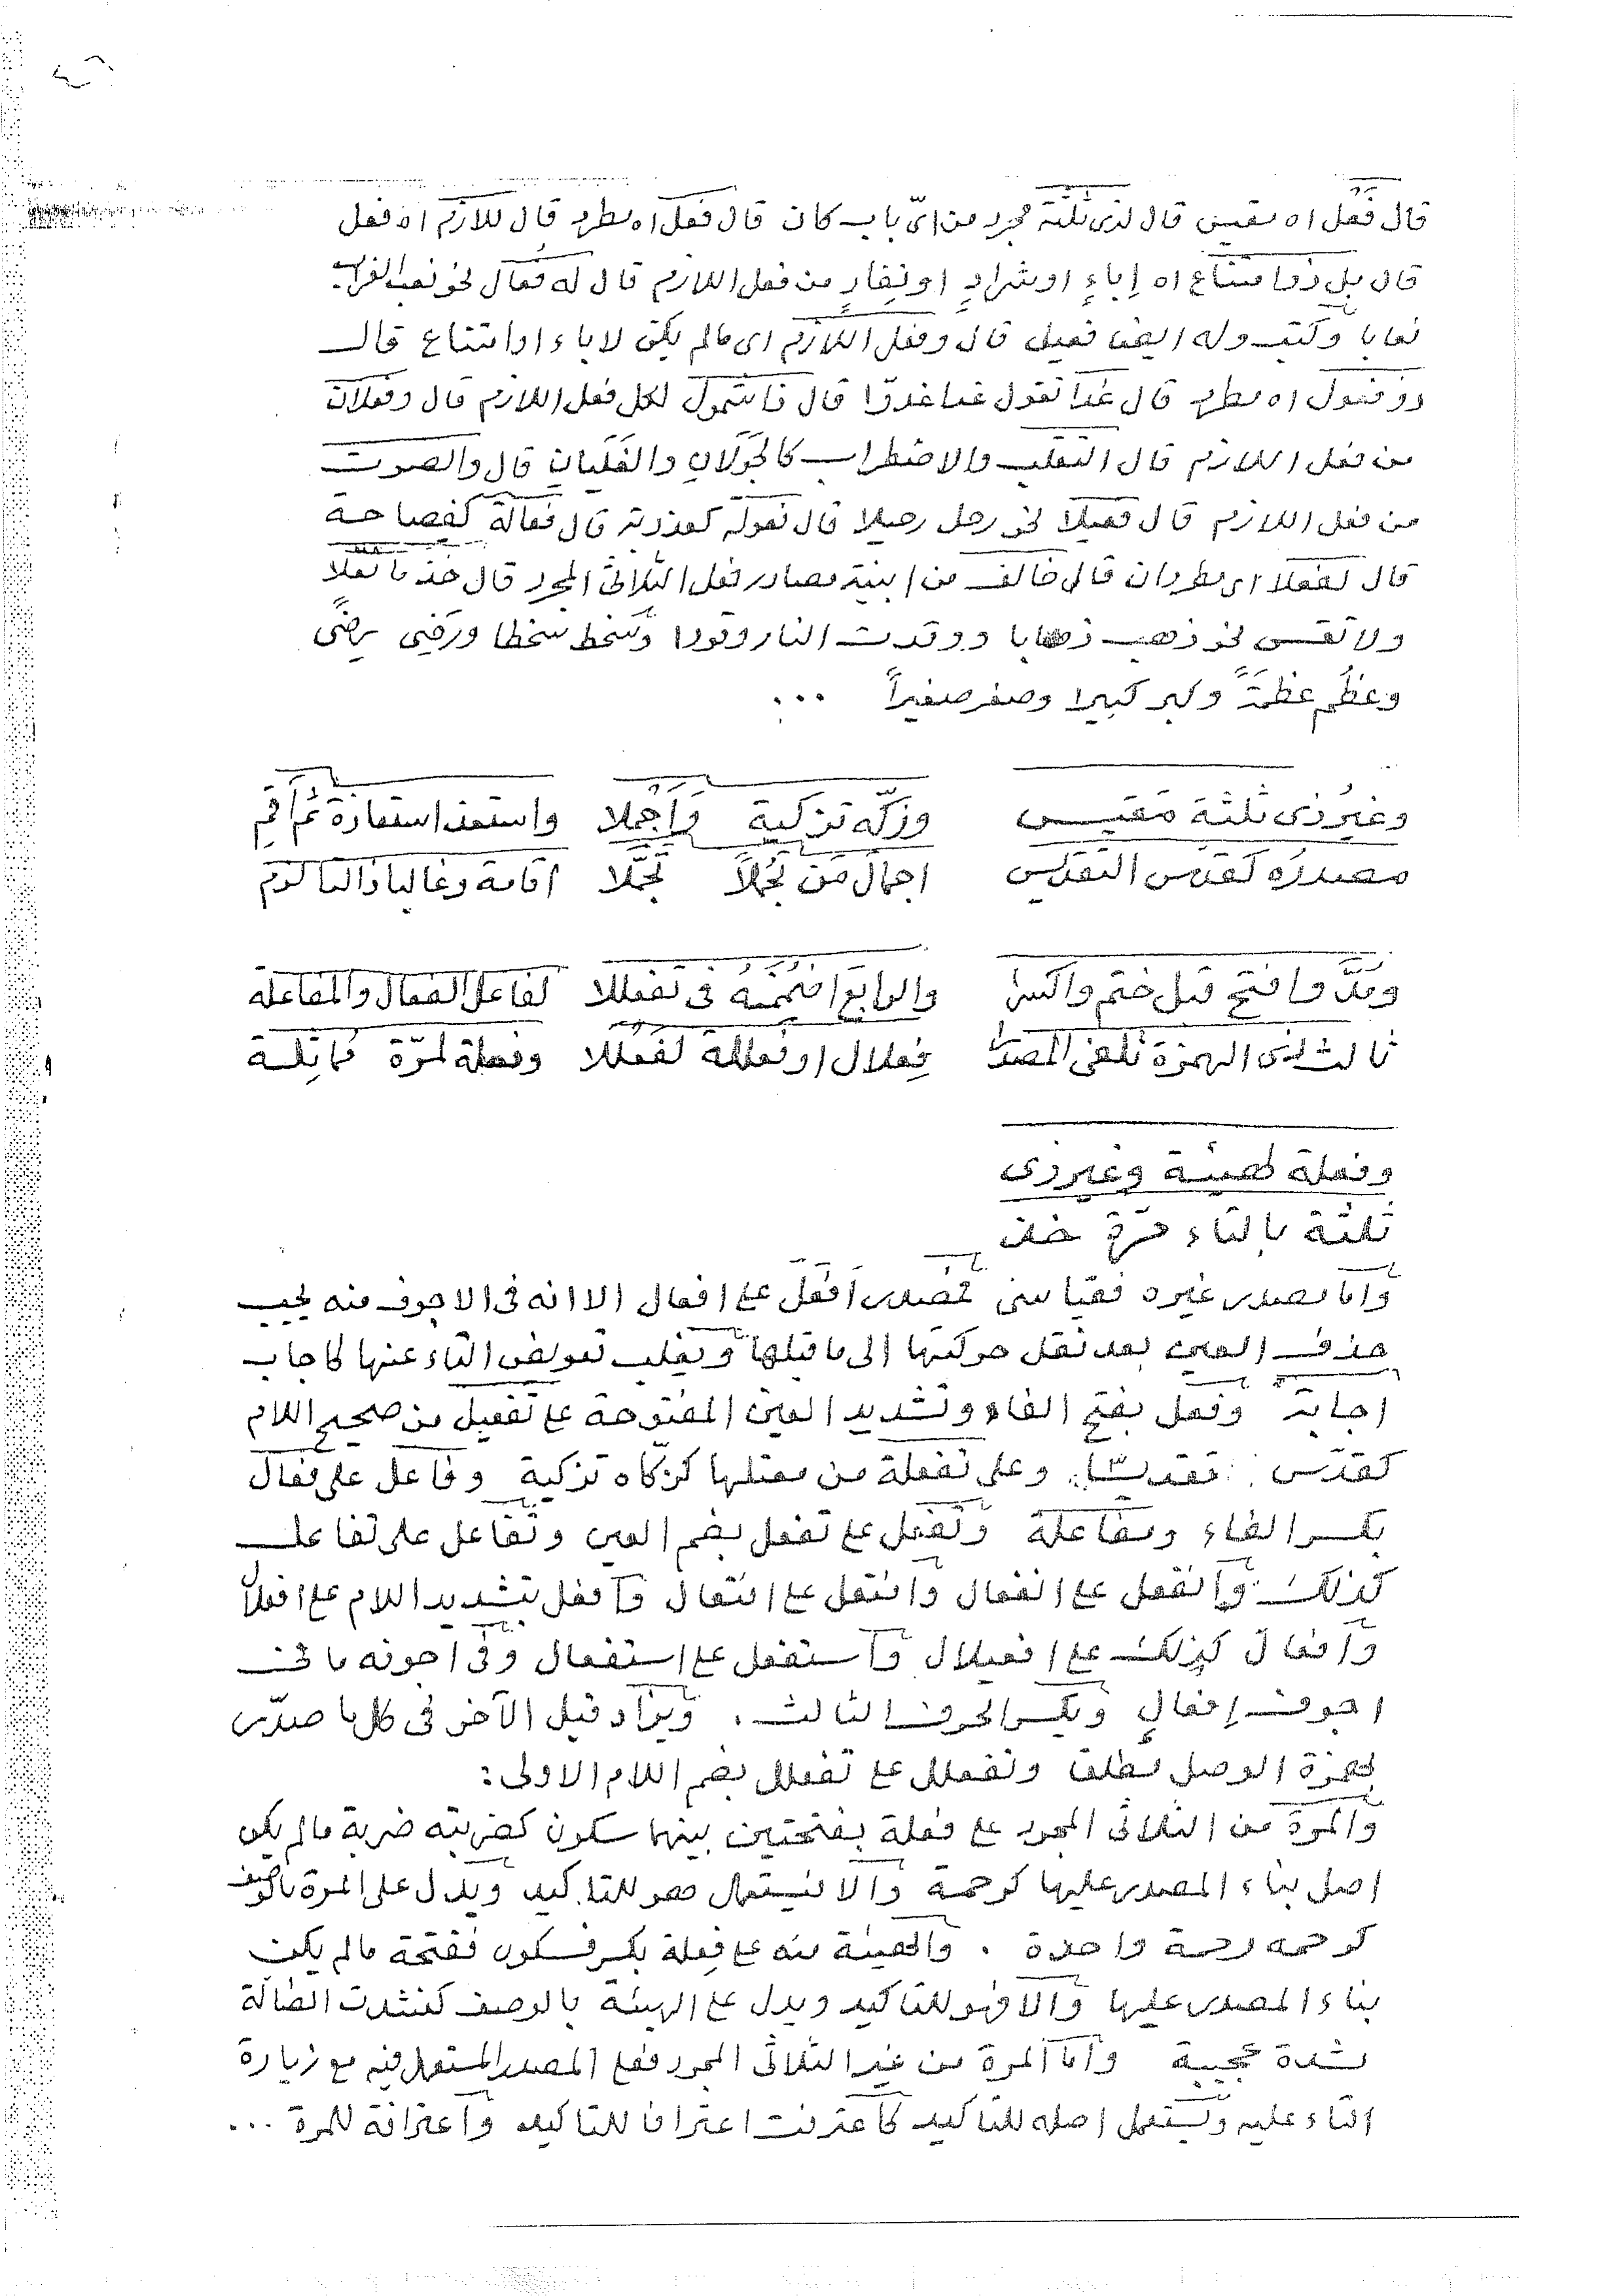 قال فَعْل اه مقيس قال لذى ثلثة مجرد من اىّ باب كان قال فعل اه مطرد قال للازم اه فعل
قال بل ذوا متناع اه إباءٍ او شرادٍ او نِفارٍ من فعل اللازم قال له فُعال نحو نعب الغراب
نعابا وكتب وله ايضا فعيل قال وفعل اللازم اى مالم يكن لاباء او امتناع قال
ذو فعول اه مطرد قال غدا تقول غدا غدوّا قال فا شمول لكل فعل اللازم قال وفعلان
من فعل اللازم قال التقلب والاضطراب كالجَوَلانِ والغَلَيانِ قال والصوت
من فعل اللازم قال فعيلا نحو رحل رحيلا قال فعولة كعذوبة قال فعالة كفصاحة
قال لفَعُلا اى مطردان قال خالف من ابنية مصادر فعل الثلاثى المجرد قال خذ ما نقلا
ولا تقس نحو ذهب ذهابا ووقدت النار وقودا وسَخط سُخطا ورَضِى يرضىً
وعظُم عظمَةً وكبر كبيرا وصغر صغيراً ...
وغيرُ ذى ثلثة مَقيس وزكّه تزكية وأَجْمِلا واستعذ استعاذة ثم أقم
مصدرُه كقدّس التقديس اجمالَ مَن تجمّلاً تجمّلا اقامة وغالبا ذا التا لزم
ومُدَّ وافتح قبل ختم واكسرا والرابعَ اضممنه فى تفعللا لفاعل الفعال والمفاعلة
ثالث لذى الهمزة تلفى المصدرا فِعلال او فعللة لفعللا وفعلة لمرّة كماثلة
وفعلة لهيئة وغير ذى
ثلثة بالتاء مرة خذ
وأما مصدر غيره فقياسىّ فمصدر أَفْعَلَ على افعال الا انه فى الاجوف منه يجب
حذف العين بعد نقل حركتها الى ما قبلها ويغلب تعويض التاء عنها كاجاب
اجابة وفعل بفتح الفاء وتشديد العين المفتوحة على تفعيل من صحيح اللام
كقدّس تقديسًا وعلى تفعلة من معتلها كزكّاه تزكية وفاعل على فعال
بكسر الفاء ومفاعلة وتفعل على تفعل بضم العين وتفاعل على تفاعل
كذلك وانفعل على انفعال وافتعل على افتعال وافعل بتشديد اللام على افعلال
وافعالّ كذلك على افعيلال واستفعل على استفعال وفى اجوفه ما فى
اجوف إفعالٍ ويكسر الحرف الثالث. ويزاد قبل الآخر فى كل ما صدّر
بهمزة الوصل مطلقا وتفعلل على تفعلل بضم اللام الاولى:
والمرة من الثلاثى المجرد على فعلة بفتحتين بينهما سكون كضربته ضربة مالم يكن
اصل بناء المصدر عليها كرحمة والا فيستعمل هو للتاكيد ويدل على المرة بالوصف
كرحمه رحمة واحدة . والهيئة منه على فِعلة بكسر فسكون ففتحة مالم يكن
بناء المصدر عليها والا فهو للتاكيد ويدل على الهيئة بالوصف كنشدت الضالّة
نشدة عجيبة وأما المرة من غير الثلاثى المجرد فعلى المصدر المستعمل فيه مع زيادة
التاء عليه ويستعمل اصله للتاكيد كاعترفت اعترافا للتاكيد واعترافة للمرة ...